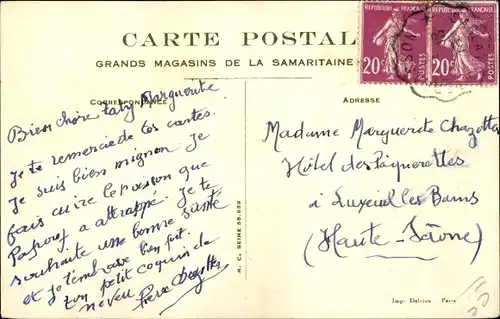 CARTE POSTALE
GRANDS MAGASINS DE LA SAMARITAINE
CORRESPONDANCE
ADRESSE
REPUBLIQUE FRANÇAISE
20c
POSTES
REPUBLIQUE FRANÇAISE
20c
POSTES
Bien chère taty Marguerite
Je te remercie de tes cartes.
Je suis bien mignon. Je
fais cuire le poisson que
Papouj a attrappé. Je te
souhaite une bonne santé
et je t'embrasse bien fort.
ton petit coquin de
neveu Pierre
R. C. SEINE 55.659
Madame Marguerite Chazottes
Hôtel des Paquerettes
à Luxeuil les Bains
(Haute-Saône)
Imp. Delrieu Paris